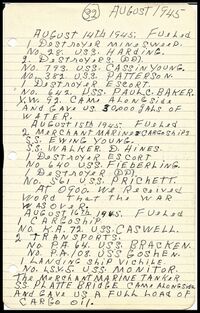 32
AUGUST 1945
AUGUST 14TH 1945. FUELED
1 DESTROYER MINESWEEP.
NO. 28. USS. HARDING.
2. DESTROYERS (DD).
NO. 793. USS. CASSIN YOUNG.
NO. 392 USS. PATTERSON.
1 DESTROYER ESCORT.
NO. 642. USS. PAUL G. BAKER.
Y.W. 92. CAME ALONGSIDE
AND GAVE US 30,000 GALS OF
WATER.
AUGUST 15TH 1945. FUELED
2 MERCHANT MARINE CARGO SHIPS.
SS. EWING YOUNG.
SS. WALKER D. HINES.
1 DESTROYER ESCORT.
NO 640 USS. FIEBERLING.
1 DESTROYER (DD)
NO. 561 USS. PRICHETT.
AT 0900. WE RECEIVED
WORD THAT THE WAR
WAS OVER
AUGUST 16TH 1945. FUELED
1 CARGO SHIP
NO. K.A. 72. USS. CASWELL.
2 TRANSPORTS.
NO P.A. 64. USS. BRACKEN.
NO. P.A. 108. USS GOSHEN.
1 LANDING SHIP VICHILE.
NO. LSV.5. USS. MONITOR.
THE MERCHANT MARINE TANKER
SS PLATTE BRIDGE CAME ALONGSIDE
AND GAVE US A FULL LOAD OF
CARGO OIL.